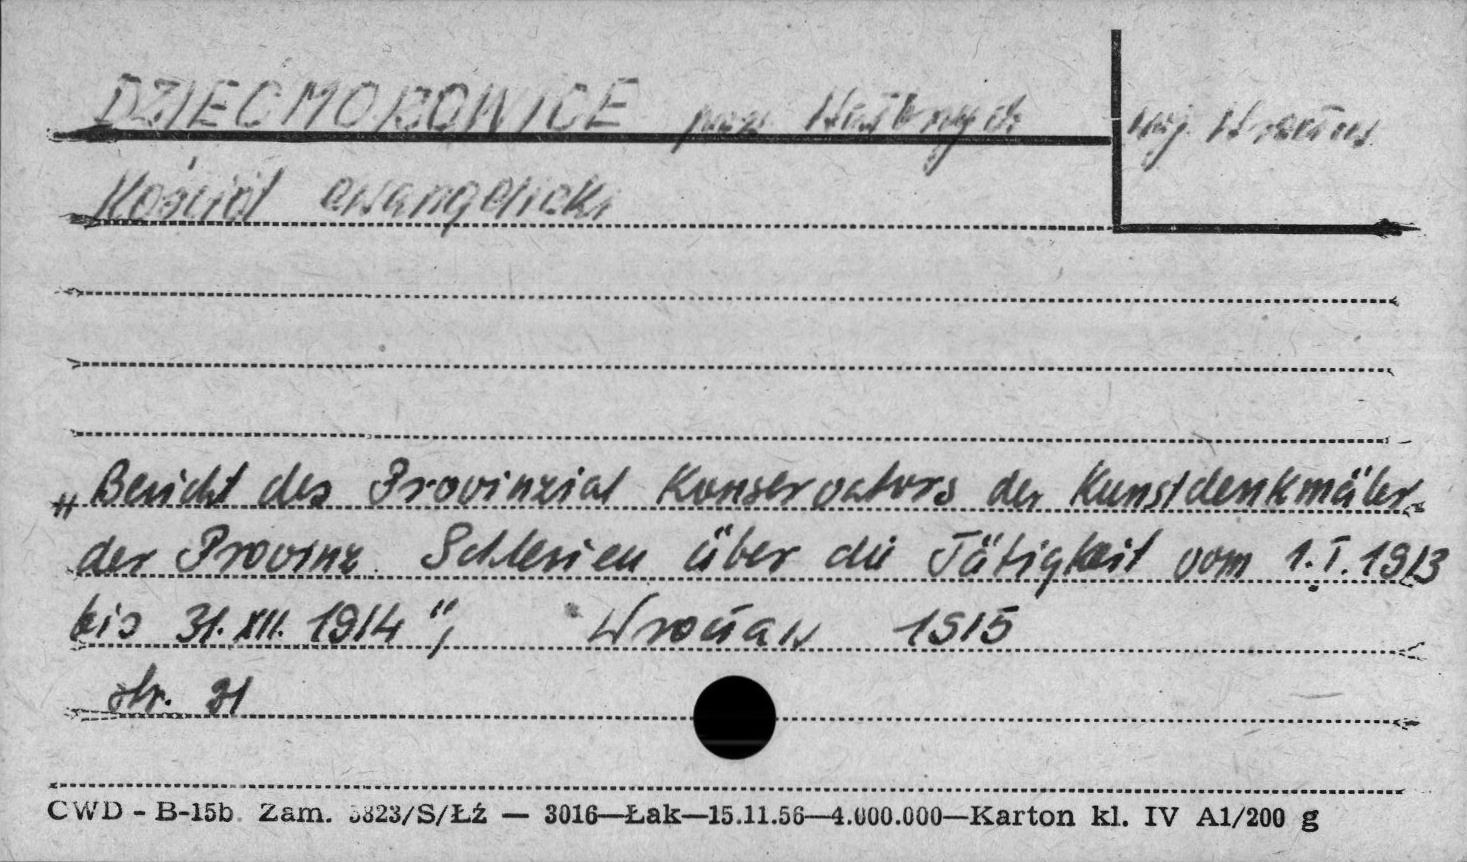 DZIEĆMOROWICE pow. Wałbrzych woj. Wrocław
Kościół ewangelicki
„Bericht des Provinzial Konservators der Kunstdenkmäler
der Provinz Schlesien über die Tätigkeit vom 1.I.1913
bis 31.XII.1914", Wrocław 1915
str. 31
CWD - B-15b Zam. 5823/S/Łź — 3016—Łak—15.11.56—4.000.000—Karton kl. IV A1/200 g